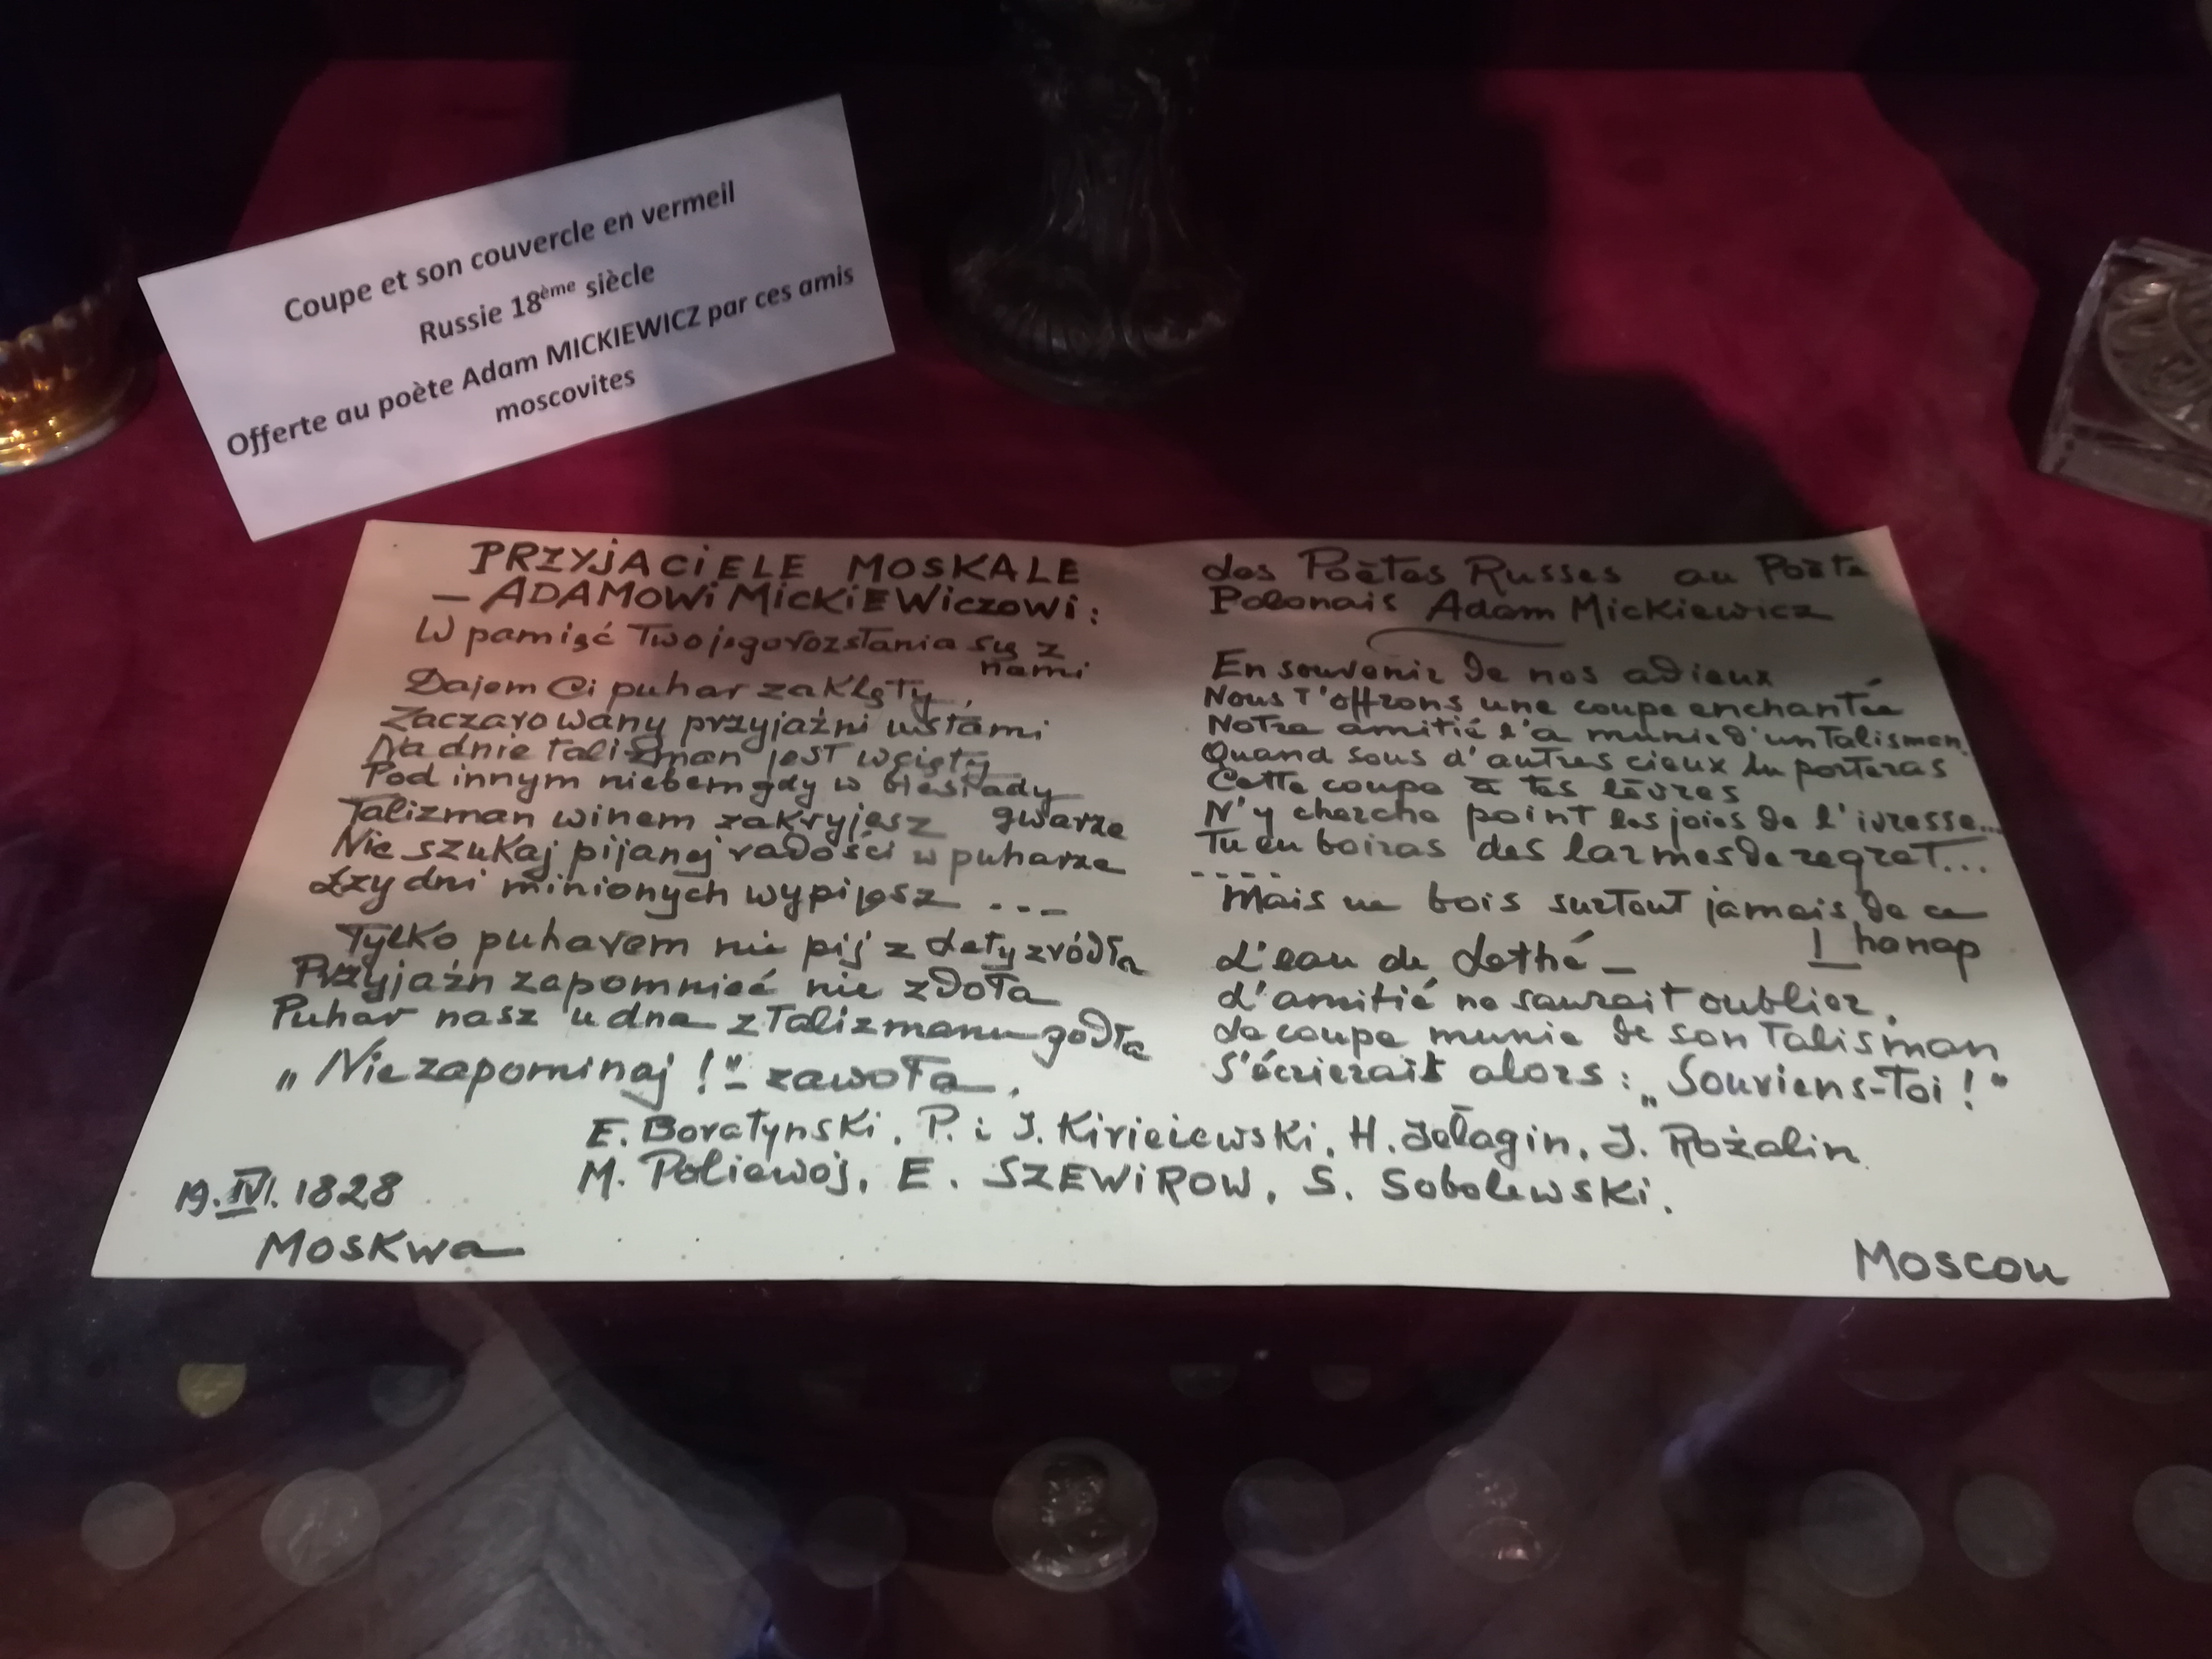 Coupe et son couvercle en vermeil
Russie 18ème siècle
Offerte au poète Adam MICKIEWICZ par ces amis
moscovites
PRZYJACIELE MOSKALE
– ADAMOWI MICKIEWICZOWI:
W pamięć Twojego rozstania się z
nami
Dajem Ci puhar zaklęty,
Zaczarowany przyjaźni ustami
Na dnie talizman jest wcięty
Pod innym niebem gdy w biesiady
gwarze
Talizman winem zakryjesz
Nie szukaj pijanej radości w puharze
Łzy dni minionych wypijesz ....
Tylko puharem nie pij z Lety źródła
Przyjaźń zapomnieć nie zdoła
Puhar nasz u dna z talizmanu godła
„Nie zapominaj!" – zawoła.
des Poètes Russes au Poète
Polonais Adam Mickiewicz
En souvenir de nos adieux
Nous t'offrons une coupe enchantée
Notre amitié l'a munie d'un talisman.
Quand sous d'autres cieux tu porteras
Cette coupe à tes lèvres
N'y cherche point les joies de l'ivresse...
Tu en boiras des larmes de regret...
....
Mais ne bois surtout jamais de ce
hanap
L'eau de Lethé –
L'amitié ne saurait oublier.
La coupe munie de son talisman
S'écrierait alors: „Souviens-toi!"
E. Boratynski, P. i J. Kirieiewski, H. Jełagin, J. Rożalin
M. Poliewoj, E. SZEWIROW, S. Sobolewski.
19.IV. 1828
Moskwa
Moscou